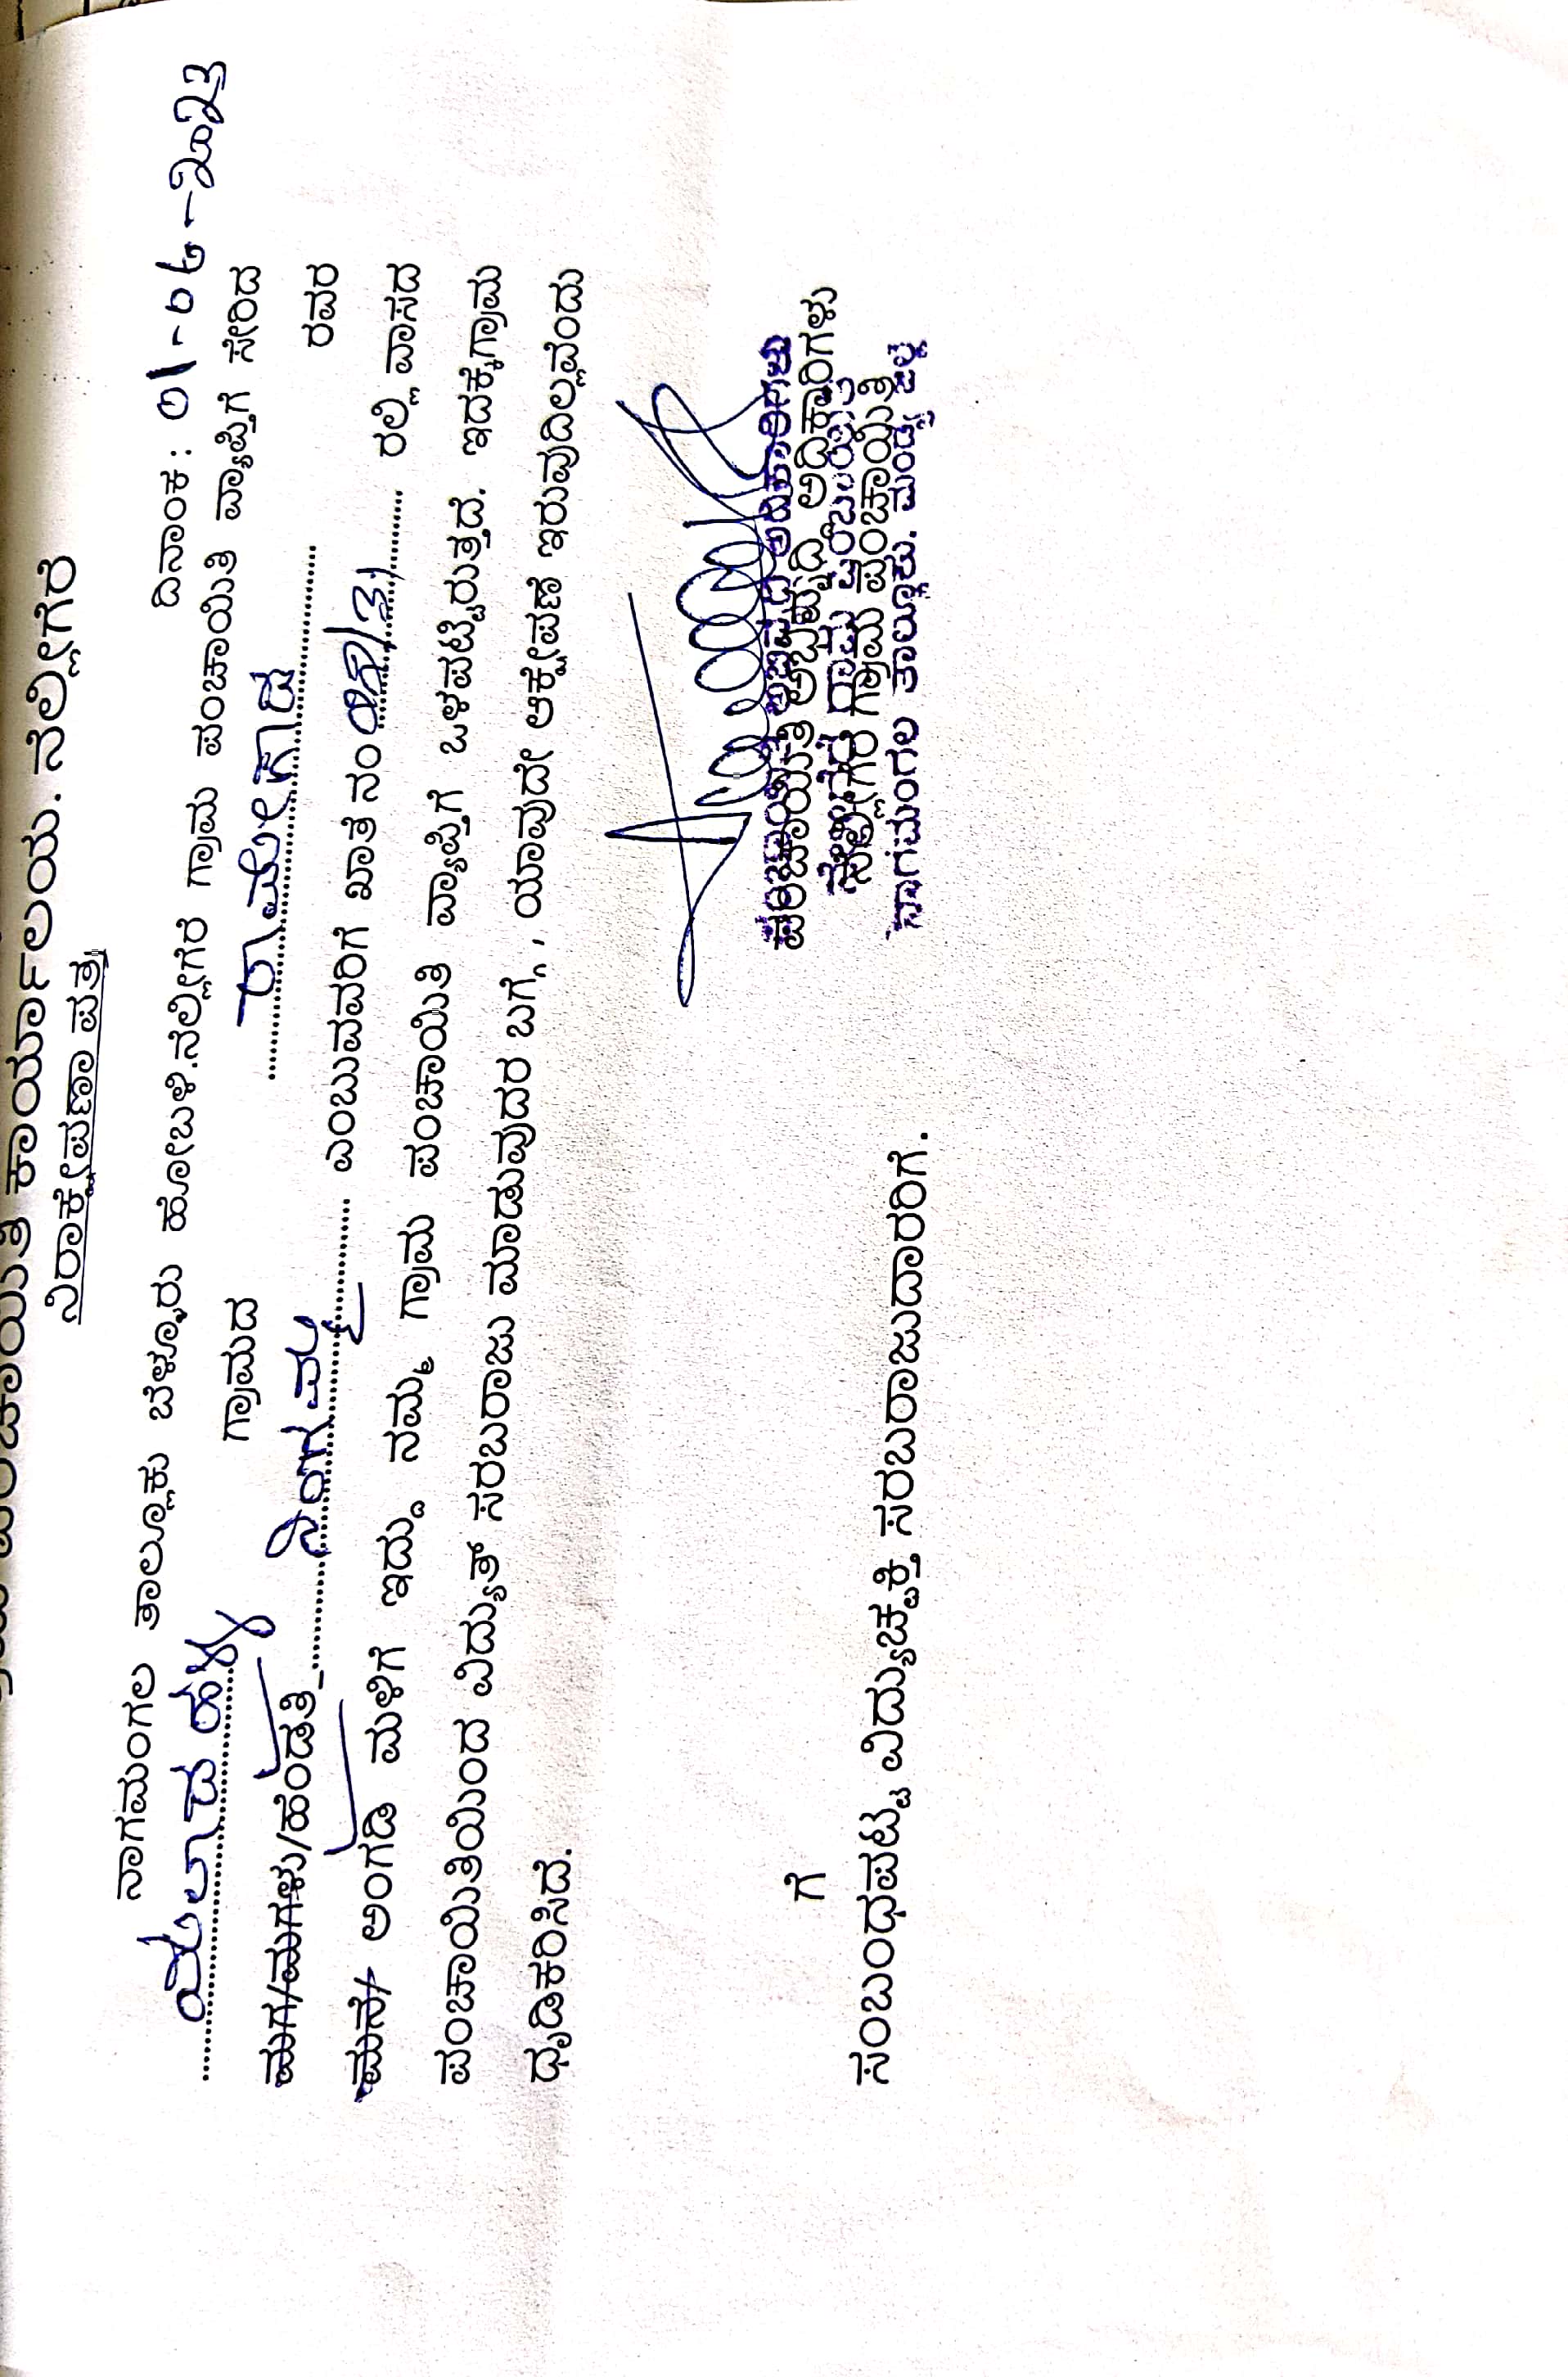 ಪಂಚಾಯಿತಿ ಕಾರ್ಯಾಲಯ. ನಲ್ಲೀಗೆರೆ
ನಿರಾಕ್ಷೇಪಣಾ ಪತ್ರ
ದಿನಾಂಕ: 01-06-2023
ನಾಗಮಂಗಲ ತಾಲ್ಲೂಕು ಬೆಳ್ಳೂರು ಹೋಬಳಿ.ನಲ್ಲೀಗೆರೆ ಗ್ರಾಮ ಪಂಚಾಯಿತಿ ವ್ಯಾಪ್ತಿಗೆ ಸೇರಿದ
ಗ್ರಾಮದ ರಾಮೇಗೌಡ ರವರ
ಮಗ/ಮಗಳು/ಹೆಂಡತಿ ನಿಂಗಮ್ಮ ಎಂಬುವವರಿಗೆ ಖಾತೆ ನಂ ರಲ್ಲಿ ವಾಸದ
ಮನೆ/ ಅಂಗಡಿ ಮಳಿಗೆ ಇದ್ದು ನಮ್ಮ ಗ್ರಾಮ ಪಂಚಾಯಿತಿ ವ್ಯಾಪ್ತಿಗೆ ಒಳಪಟ್ಟಿರುತ್ತದೆ. ಇದಕ್ಕೆಗ್ರಾಮ
ಪಂಚಾಯಿತಿಯಿಂದ ವಿದ್ಯುತ್ ಸರಬರಾಜು ಮಾಡುವುದರ ಬಗ್ಗೆ, ಯಾವುದೇ ಆಕ್ಷೇಪಣೆ ಇರುವುದಿಲ್ಲವೆಂದು
ಧೃಡಿಕರಿಸಿದೆ.
ಪಂಚಾಯಿತಿ ಅಭಿವೃದ್ದಿ ಅಧಿಕಾರಿಗಳು
ನಲ್ಲೀಗೆರೆ ಗ್ರಾಮ ಪಂಚಾಯಿತಿ
ನಾಗಮಂಗಲ ತಾಲ್ಲೂಕು. ಮಂಡ್ಯ ಜಿಲ್ಲೆ
ಗೆ
ಸಂಬಂಧಪಟ್ಟ ವಿದ್ಯುಚ್ಛಕ್ತಿ ಸರಬರಾಜುದಾರರಿಗೆ.